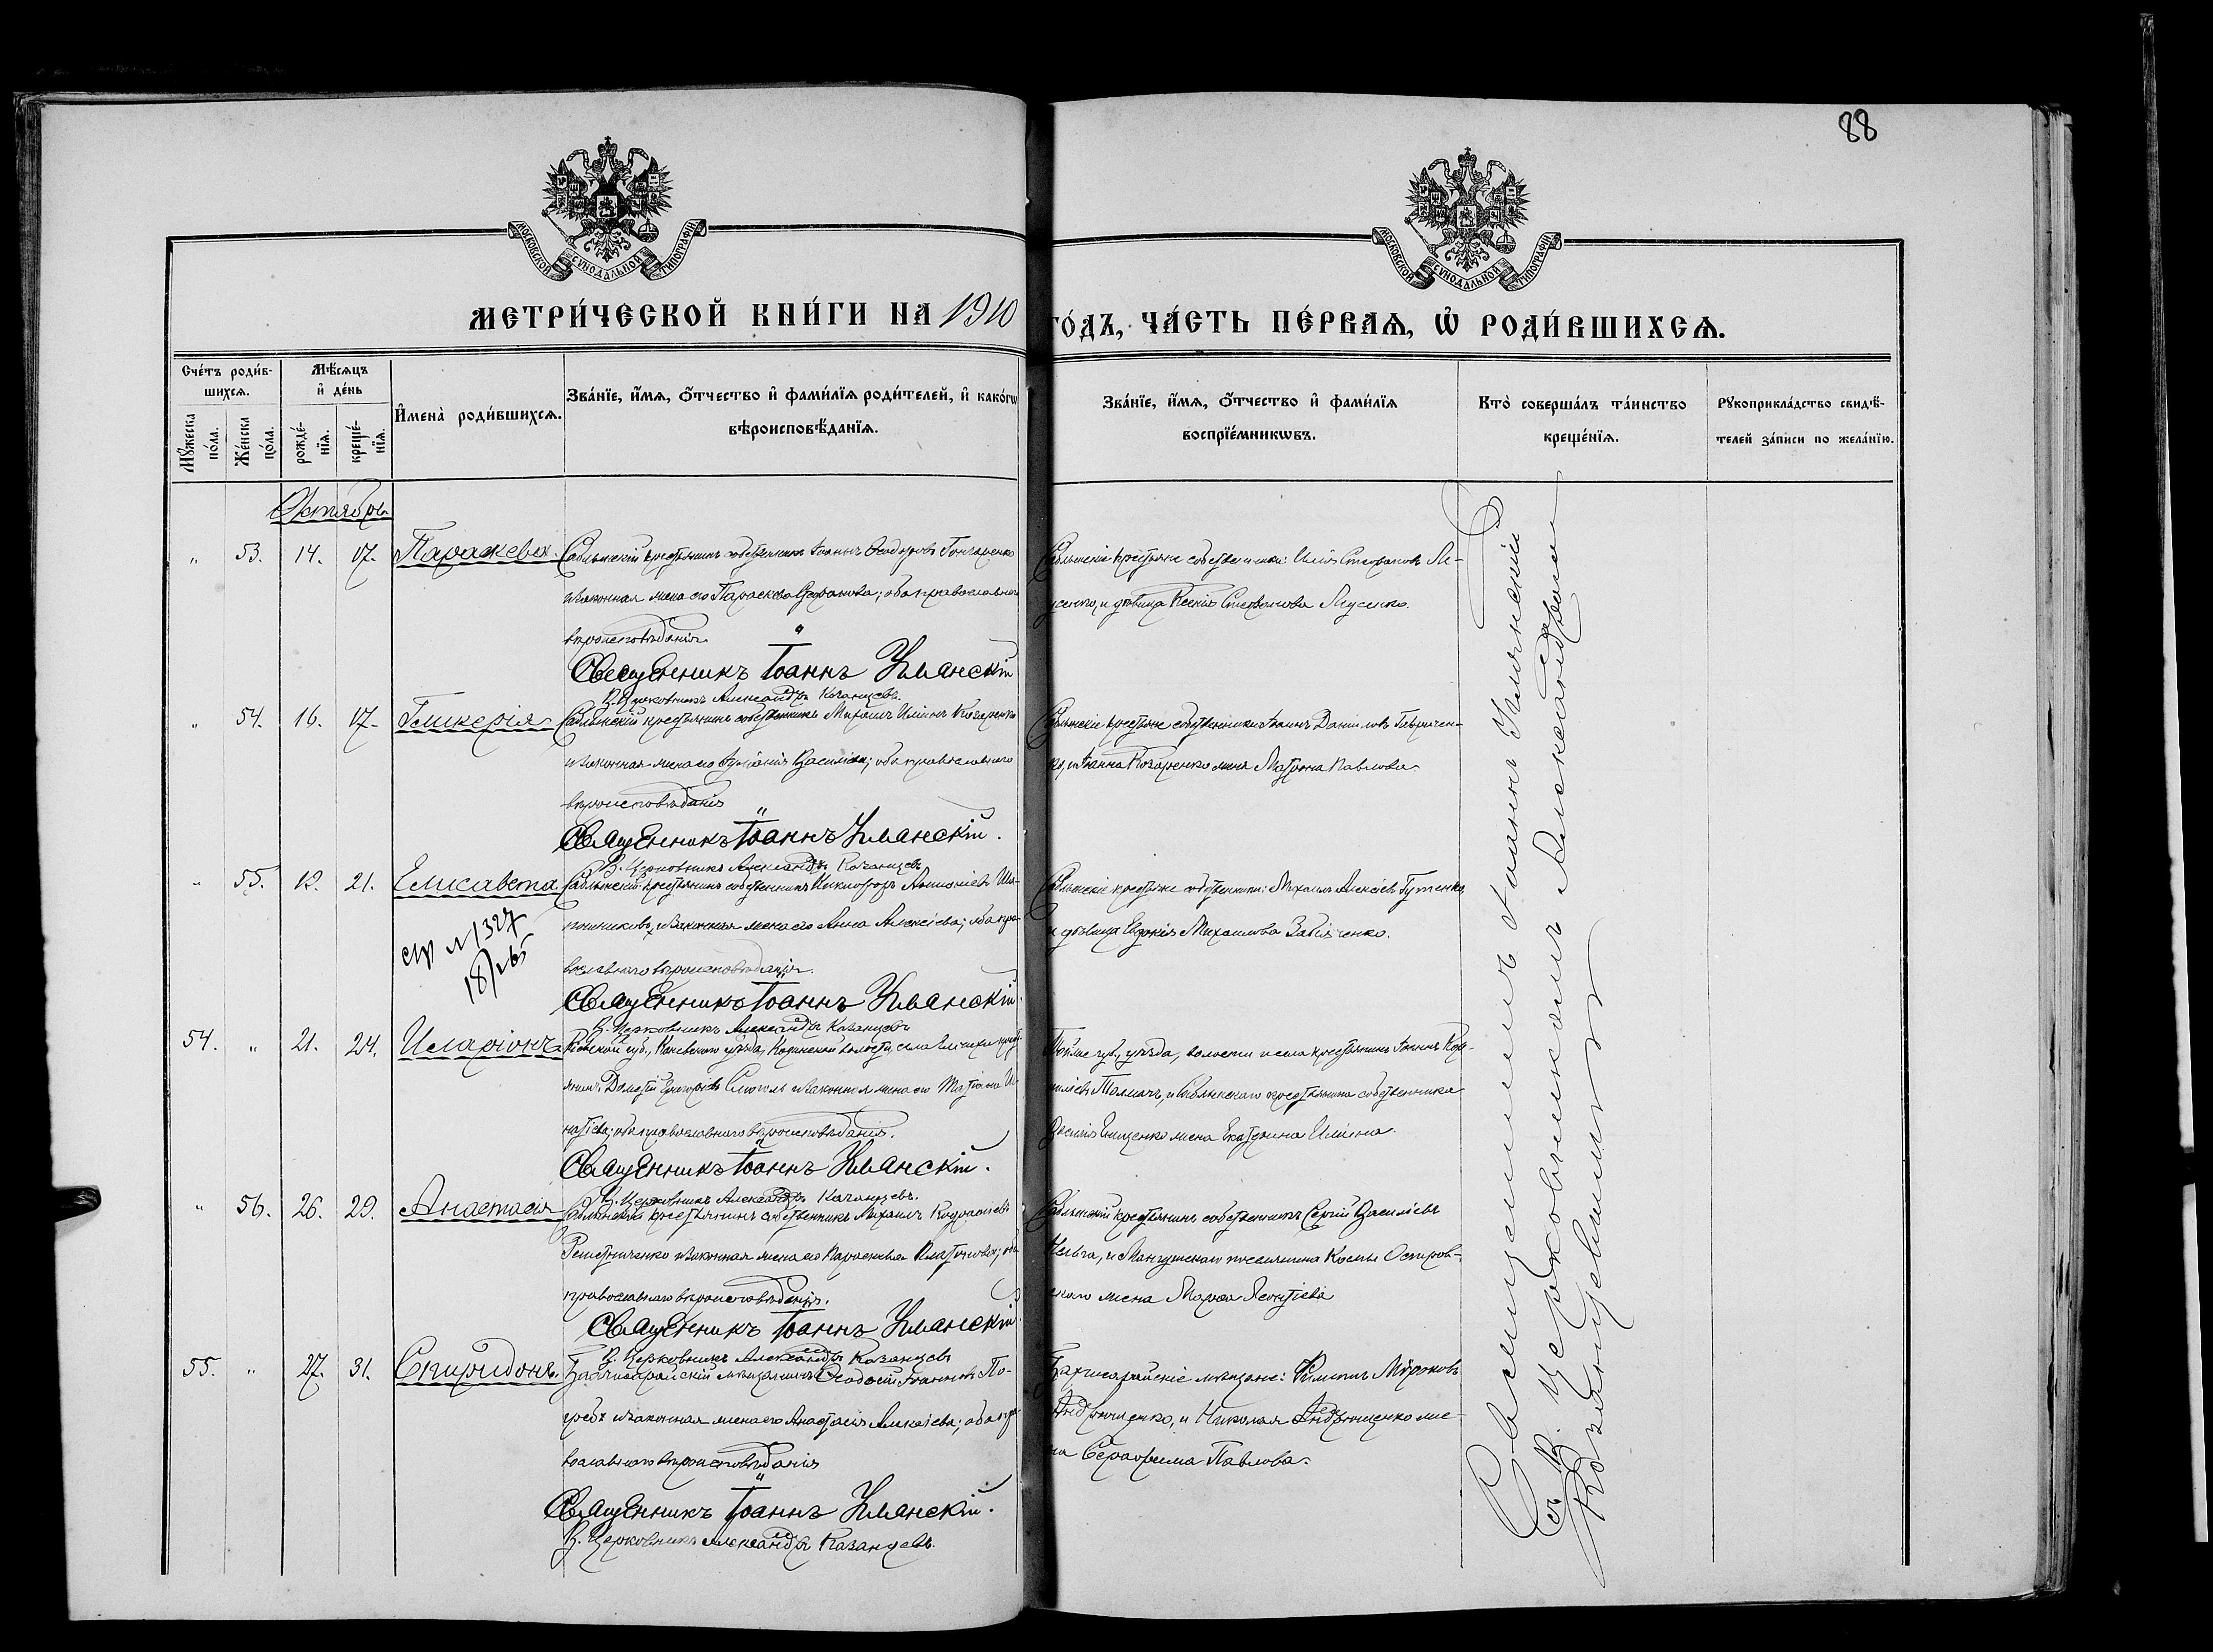 88
МОСКОВСКОЙ СУНОДАЛЬНОЙ ТИПОГРАФІИ
МОСКОВСКОЙ СУНОДАЛЬНОЙ ТИПОГРАФІИ
МЕТРИ́ЧЕСКОЙ КНИ́ГИ НА 1910
ГО́ДЪ, ЧА́СТЬ ПЕ́РВАѦ, Ѽ РОДИ́ВШИХСѦ.
Сче́тъ роди́в-
шихсѧ.
Мꙋ́жеска по́ла.
Же́нска по́ла.
Мѣ́сѧцъ
и҆ де́нь
рожде́-нїѧ.
креще́-нїѧ.
И҆мена̀ роди́вшихсѧ.
Зва́нїе, и҆́мѧ, ѻ҆́тчество и҆ фами́лїѧ роди́телей, и҆ како́гѡ
вѣроисповѣ́данїѧ.
Зва́нїе, и҆́мѧ, ѻ҆́тчество и҆ фами́лїѧ
воспрїе́мникѡвъ.
Кто̀ соверша́лъ та́инство
креще́нїѧ.
Рꙋкоприкла́дство свидѣ́-
телей за́писи по жела́нїю.
Октябрь
" 53. 14. 17. Параскева. Саблынскій крестьянинъ собственникъ Іоаннъ Ѳеодоровъ Гончаренко
и законная жена его Параскева Стефанова; оба православнаго
вѣроисповѣданія.
Священникъ Іоаннъ Уманскій
В. Церковникъ Александръ Казанцевъ.
Саблынскіе крестьяне собственники: Илія Стефановъ Лу-
ценко, и дѣвица Ксенія Стефанова Луценко.
" 54. 16. 17. Гликерія Саблынскій крестьянинъ собственникъ Михаилъ Иліинъ Козаренко
и законная жена его Іуліанія Василіева; оба православнаго
вѣроисповѣданія
Священникъ Іоаннъ Уманскій.
В. Церковникъ Александръ Казанцевъ
Саблынскіе крестьяне собственники: Іоаннъ Даніиловъ Гавричен-
ко, и Іоанна Козаренко жена Матрона Павлова.
" 55. 19. 21. Елисавета Саблынскій крестьянинъ собственникъ Никифоръ
и законная жена его Анна Алексіева; оба пра-
вославнаго вѣроисповѣданія.
Священникъ Іоаннъ Уманскій.
В. Церковникъ Александръ Казанцевъ
1327
Саблынскіе крестьяне собственники: Михаилъ Алексіевъ Гутенко,
и дѣвица Евдокія Михаилова
54. " 21. 24. Иларіонъ Кіевской губ., Каневскаго уѣзда, волости, села
Григоріевъ и законная жена его Татіана Иг-
натіева; оба православнаго вѣроисповѣданія.
Священникъ Іоаннъ Уманскій.
В. Церковникъ Александръ Казанцевъ.
Той же губ., уѣзда, волости и села крестьянинъ Іоаннъ
Толмачъ, и Саблынскаго крестьянина собственника
Василія Енищенко жена Екатерина Иліина.
" 56. 26. 29. Анастасія Саблынскій крестьянинъ собственникъ Михаилъ Кодратіевъ
Решетниченко и законная жена его Параскева Платонова; оба
православнаго вѣроисповѣданія.
Священникъ Іоаннъ Уманскій.
В. Церковникъ Александръ Казанцевъ
Саблынскій крестьянинъ собственникъ Сергій Василіевъ
и Мангушскаго поселянина Косьмы Остров-
скаго жена Марѳа Леонтіева
55. " 27. 31. Спиридонъ. Бахчисарайскій мѣщанинъ Ѳеодосій Іоанновъ По-
гребъ и законная жена его Анастасія Алексіева; оба пра-
вославнаго вѣроисповѣданія
Священникъ Іоаннъ Уманскій.
В. Церковникъ Александръ Казанцевъ.
Бахчисарайскіе мѣщане: Филиппъ Мироновъ
Андрющенко, и Николая Андрющенко же-
на Серафима Павлова.
Священникъ Іоаннъ Уманскій
съ В. церковникомъ Александромъ
Казанцевымъ